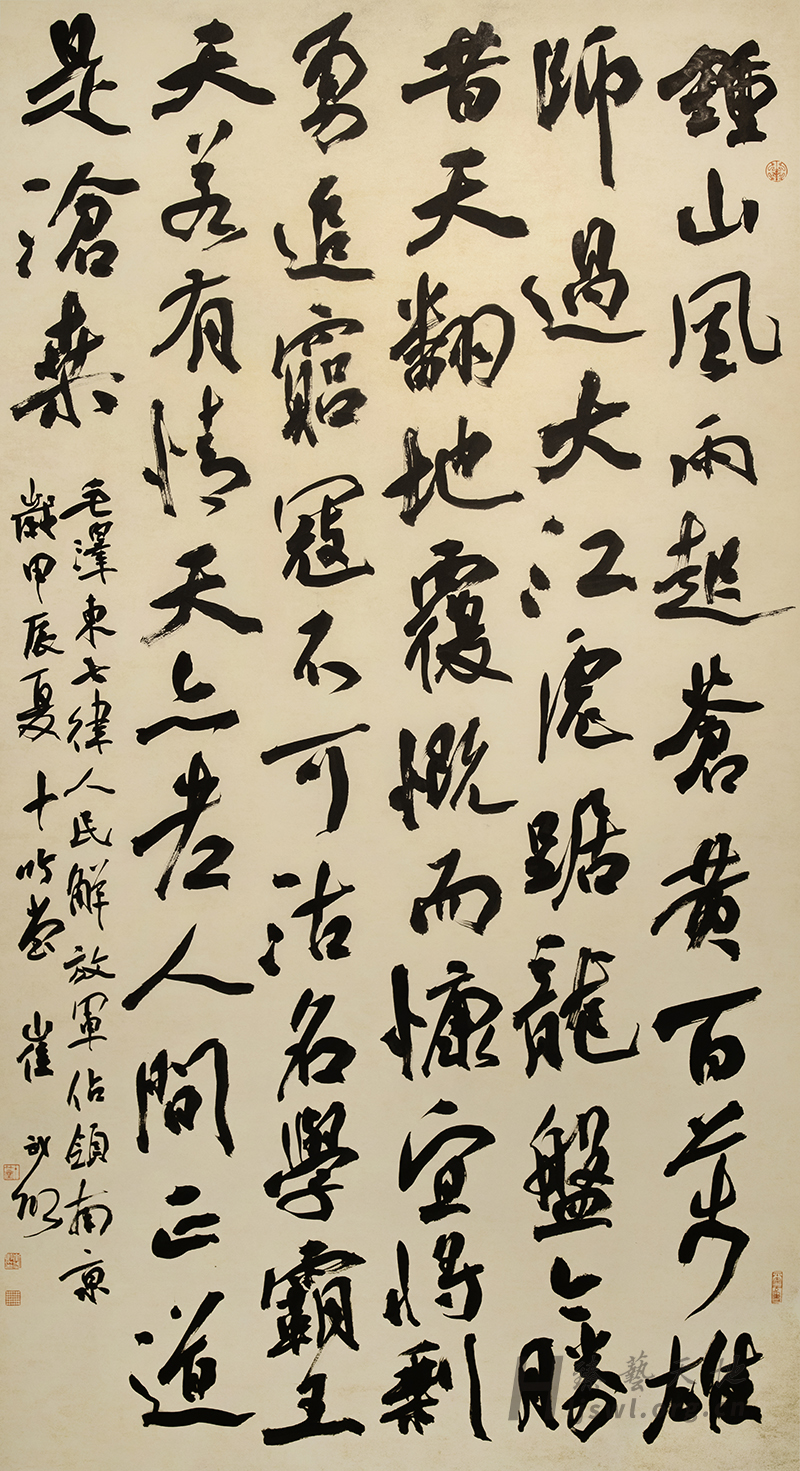 鍾山風雨起蒼黄百萬雄
師過大江虎踞龍盤今勝
昔天翻地覆慨而慷宜將剩
勇追窮寇不可沽名學霸王
天若有情天亦老人間正道
是滄桑
毛澤東七律人民解放軍佔領南京
歲甲辰夏十吟堂崔